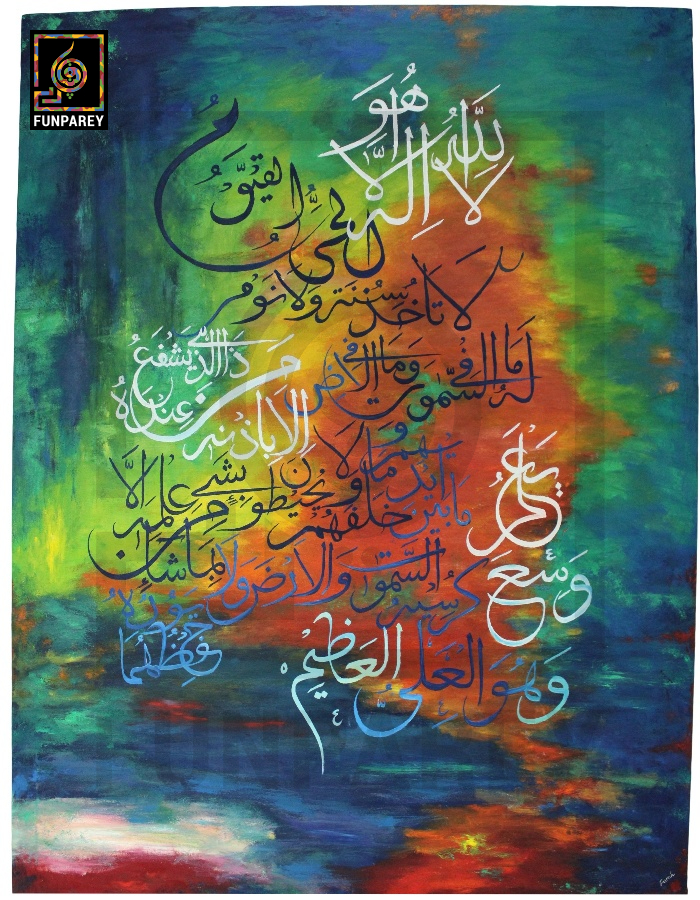 FUNPAREY
الله لا إله إلا هو
الحي القيوم
لا تأخذه سنة ولا نوم
له ما في السموت وما في الارض
من ذا الذي يشفع عنده
الا باذنه
يعلم ما بين ايديهم وما خلفهم
ولا يحيطون بشيء من علمه الا
بما شاء
وسع كرسيه السموت والارض ولا يوده
حفظهما
وهو العلي العظيم